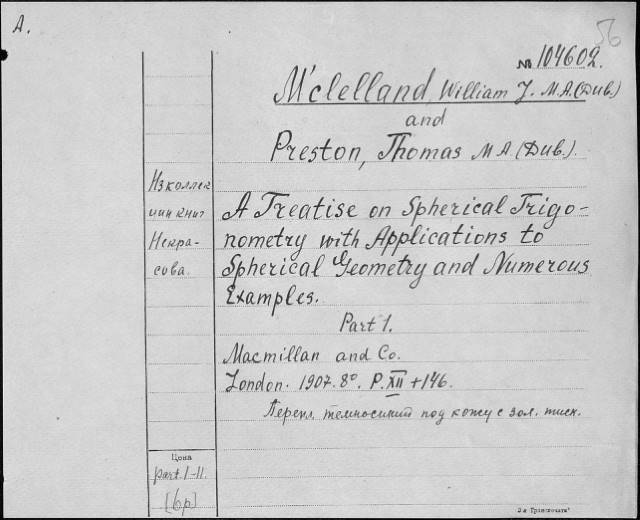 A.
56
№ 104602.
M'clelland, William J. M.A. (Dub.)
and
Preston, Thomas M A (Dub.).
Из коллек
ции книг
Некра-
сова.
A Treatise on Spherical Trigo-
nometry with Applications to
Spherical Geometry and Numerous
Examples.
Part 1.
Macmillan and Co.
London. 1907. 8°. P. XII + 146.
Перепл. темносиний под кожу с зол. тисн.
Цена
part. I-II.
[6р]